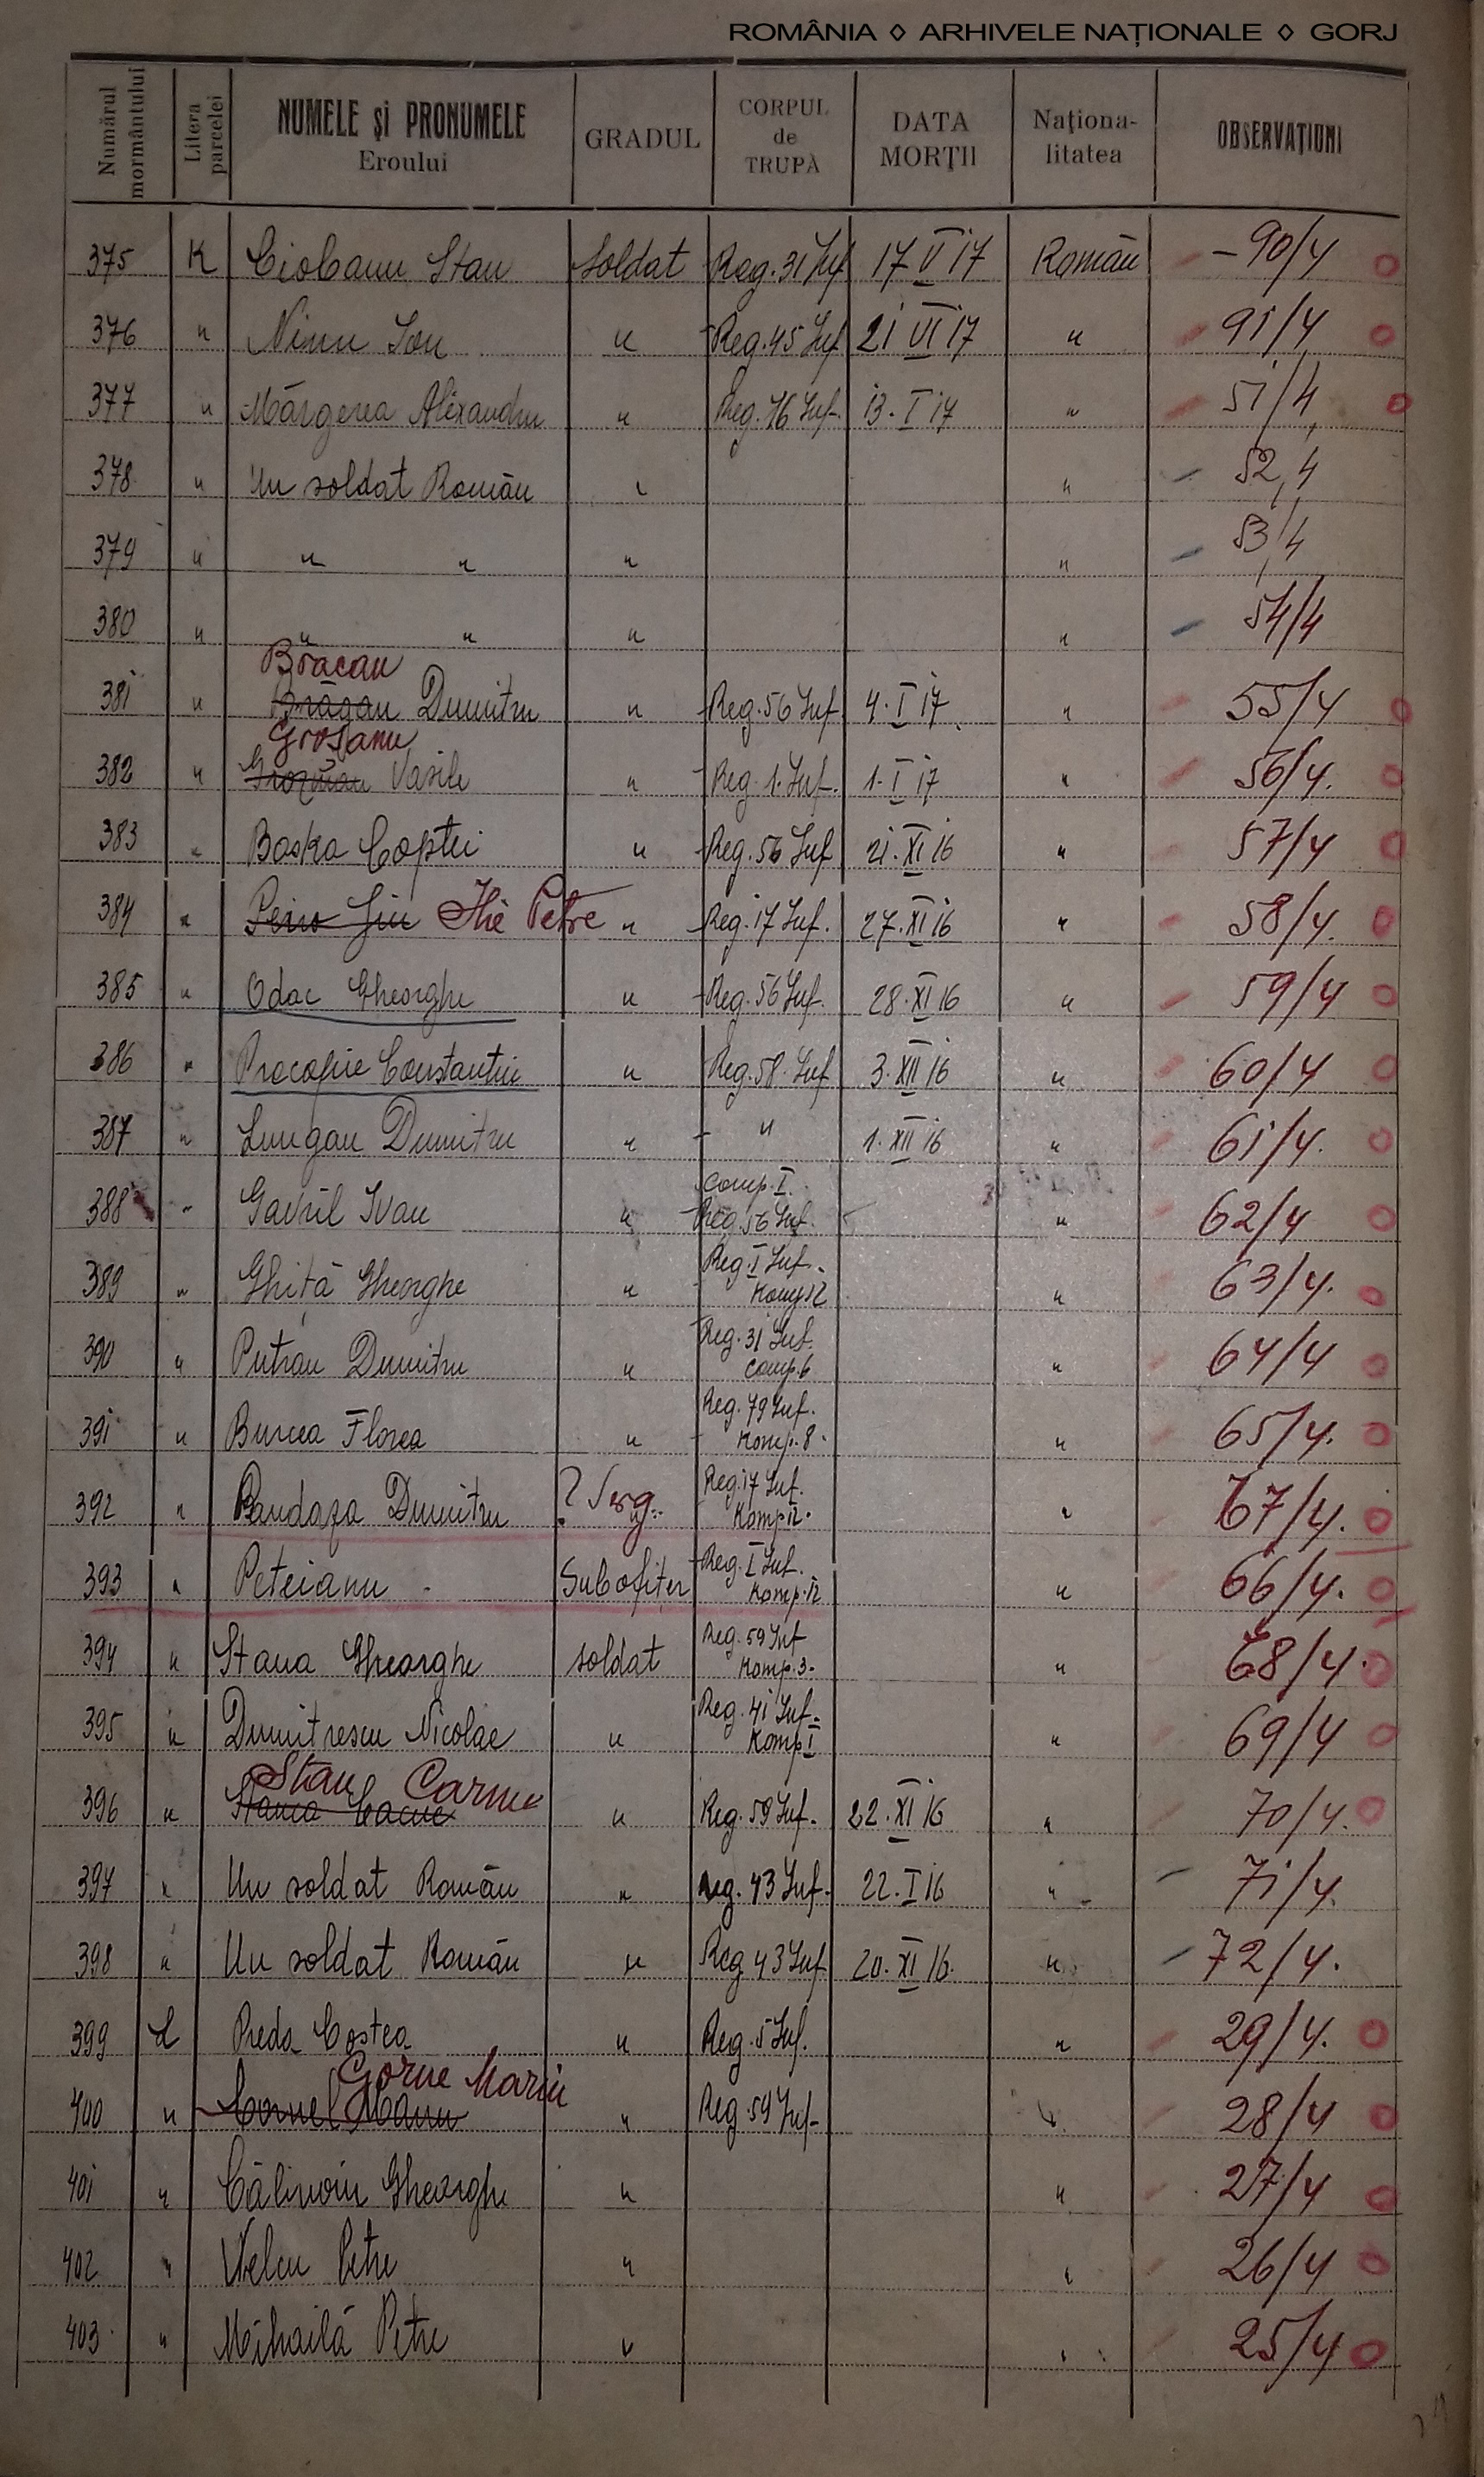 ROMÂNIA ◊ ARHIVELE NAȚIONALE ◊ GORJ
Numărul mormântului | Litera parcelei | NUMELE și PRONUMELE Eroului | GRADUL | CORPUL de TRUPĂ | DATA MORȚII | Naționalitatea | OBSERVAȚIUNI
375 K Ciobanu Stan soldat Reg. 31 Inf 17 V 17 Român – 90/4
376 " Ninu Ion " Reg. 45 Inf 21 VI 17 " 91/4
377 " Mărgerea Alexandru " Reg. 76 Inf. 13. I 17 " 51/4
378 " Un soldat Român " " 52/4
379 " " " " " 53/4
380 " " " " " 54/4
Bracan
381 " Drăgan Dumitru " Reg. 56 Inf 4. I 17. " 55/4
Groșanu
382 " Vasile " Reg. 1. Inf. 1. I 17 " 56/4.
383 " Boska Coptei " Reg. 56 Inf 21. XI 16 " 57/4
384 " Ilie Petre " Reg. 17 Inf. 27. XI 16 " 58/4.
385 " Odac Gheorghe " Reg. 56 Inf. 28. XI 16 " 59/4
386 " Procopie Constantin " Reg. 58. Inf 3. XII 16 " 60/4
387 " Lungan Dumitru " " 1. XII 16 " 61/4.
388 " Gavril Ivan " Comp. I. Reg. 56 Inf. " 62/4
389 " Ghiță Gheorghe " Reg. I Inf. Komp 12 " 63/4.
390 " Putran Dumitru " Reg. 31 Inf. Comp. 6 " 64/4
391 " Burcea Florea " Reg. 79 Inf. Komp. 8. " 65/4.
392 " Bandaza Dumitru ? Serg. " Reg. 17 Inf. Komp 12. " 67/4.
393 " Peteianu Subofițer Reg. I Inf. Komp. 12 " 66/4.
394 " Stana Gheorghe soldat Reg. 59 Inf Komp. 3. " 68/4.
395 " Dumitrescu Nicolae " Reg. 41 Inf. Komp I " 69/4
Stan Carnu
396 " " Reg. 59 Inf. 22. XI 16 " 70/4.
397 " Un soldat Român " Reg. 43 Inf. 22. I 16 " 71/4.
398 " Un soldat Român " Reg 43 Inf 20. XI 16. " 72/4.
399 L Preda Costea " Reg. 5 Inf. " 29/4.
Gorne Marin
400 " Cornel Manu " Reg. 59 Inf. " 28/4
401 " Călinoiu Gheorghe " " 27/4
402 " Velcu Petre " " 26/4
403 " Mihailă Petre " " 25/4